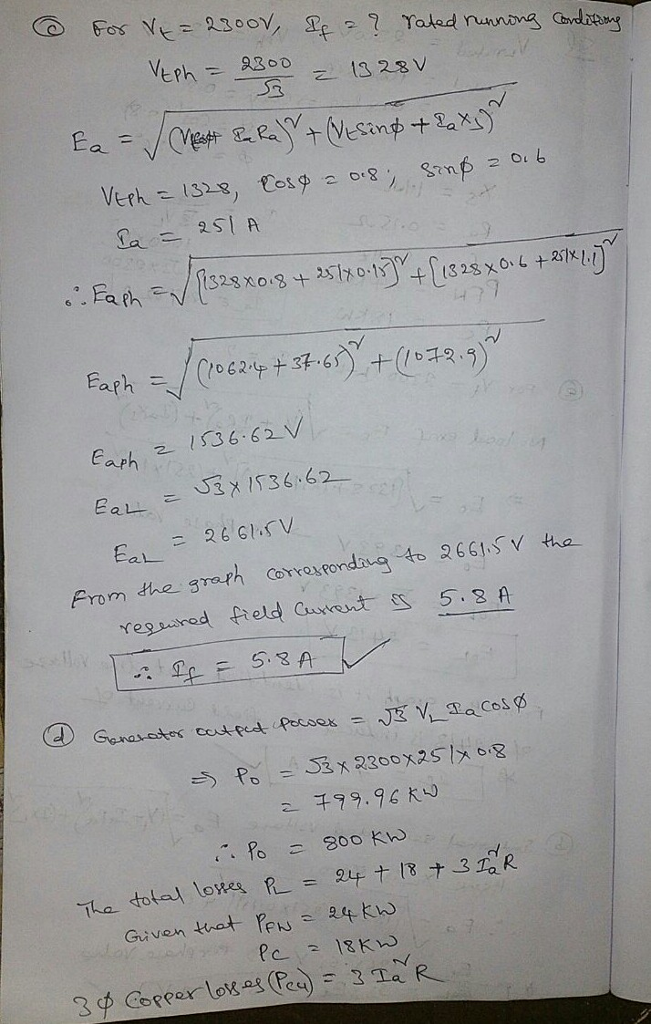 ⓒ For Vt = 2300V, If = ? rated running Conditions
Vtph = 2300/√3 = 1328V
Ea = √((Vt cosφ + IaRa)² + (Vt sinφ + IaXs)²)
Vtph = 1328, Cosφ = 0.8; Sinφ = 0.6
Ia = 251 A
∴ Eaph = √([1328×0.8 + 251×0.15]² + [1328×0.6 + 251×1.1]²)
Eaph = √((1062.4 + 37.65)² + (1072.9)²)
Eaph = 1536.62 V
EaL = √3 × 1536.62
EaL = 2661.5V
From the graph corresponding to 2661.5V the
required field Current is 5.8 A
∴ If = 5.8 A ✓
ⓓ Generator output power = √3 VL Ia cosφ
⇒ Po = √3 × 2300×251×0.8
= 799.96 KW
∴ Po = 800 KW
The total losses PL = 24 + 18 + 3 Ia² R
Given that PFW = 24 KW
Pc = 18KW
3φ Copper losses (Pcu) = 3 Ia² R